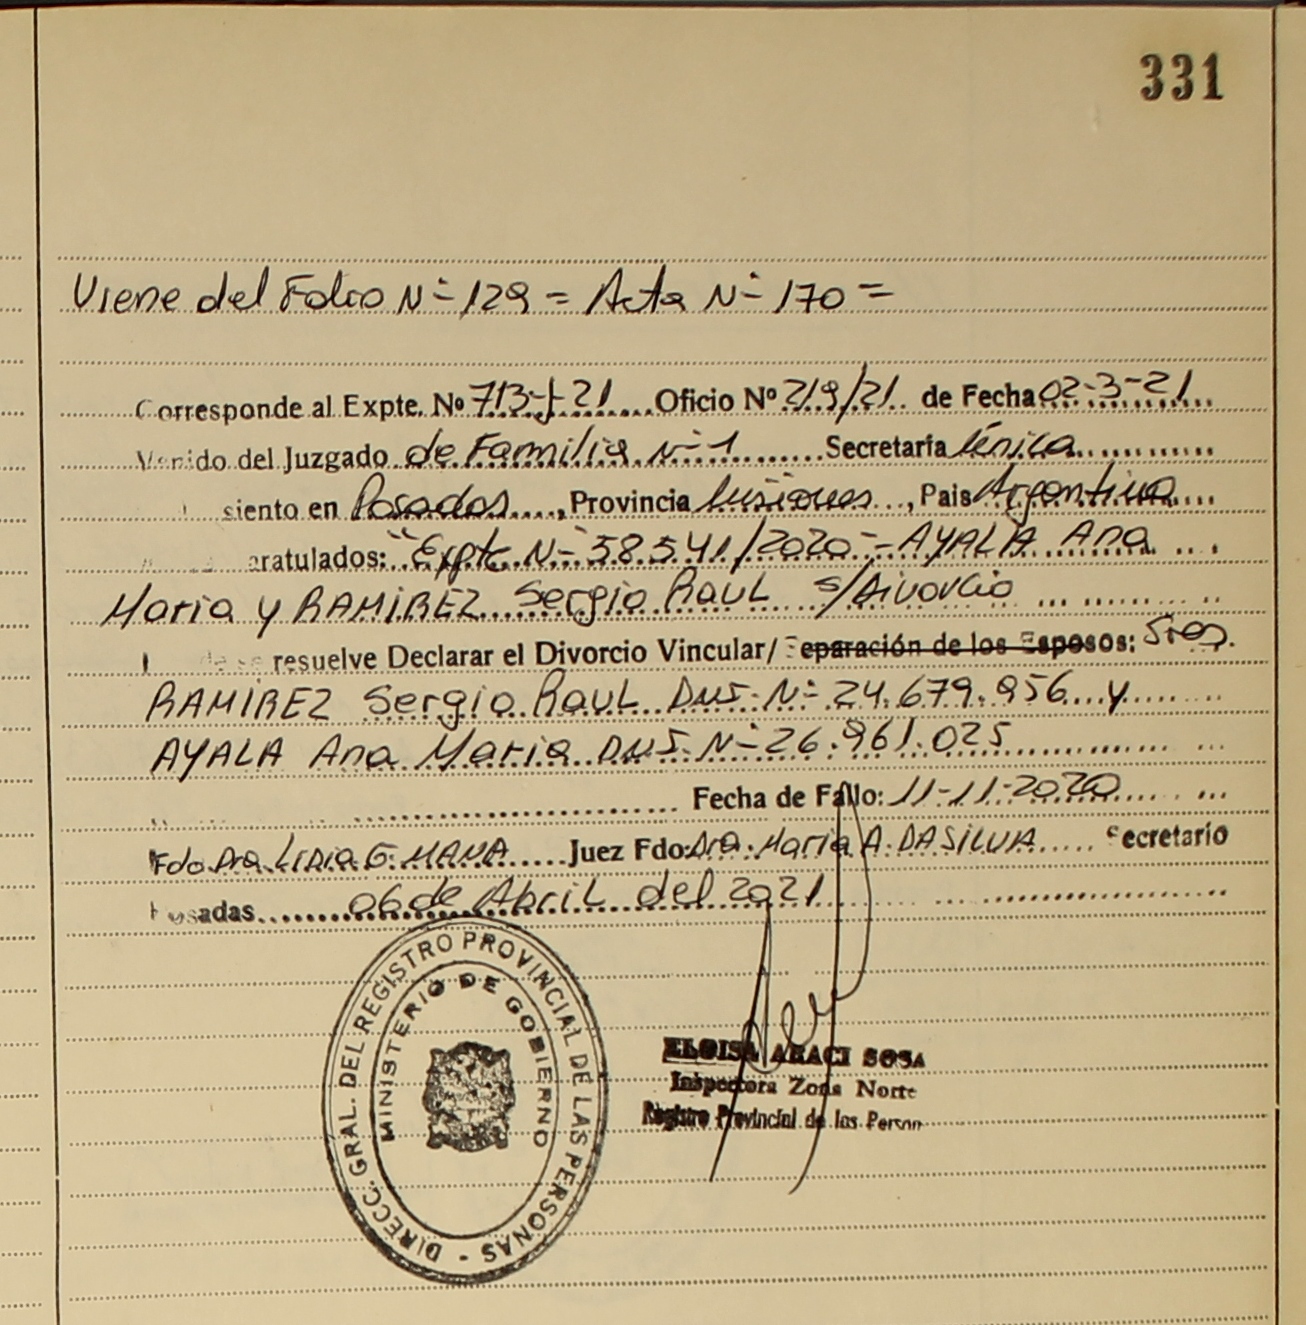 331
Viene del Folio Nº 129 = Acta Nº 170 =
Corresponde al Expte. Nº 713-J-21 Oficio Nº 219/21 de Fecha 02-3-21
Venido del Juzgado de Familia Nº 1 Secretaría Única
siento en Posadas, Provincia Misiones, Pais Argentina
aratulados: "Expte Nº 58.541/2020 - AYALA Ana
Maria y RAMIREZ Sergio Raul s/Divorcio
resuelve Declarar el Divorcio Vincular/ Separación de los Esposos: Sres.
RAMIREZ Sergio Raul DNI. Nº 24.679.956 y
AYALA Ana Maria DNI. Nº 26.961.025
Fecha de Fallo: 11-11-2020
Fdo Dra. Lidia G. Juez Fdo: Dra. Maria A. DASILVA Secretario
Posadas 06 de Abril del 2021
DIRECC. GRAL. DEL REGISTRO PROVINCIAL DE LAS PERSONAS -
MINISTERIO DE GOBIERNO
ELOISA ARACI SOSA
Inspectora Zona Norte
Registro Provincial de las Person